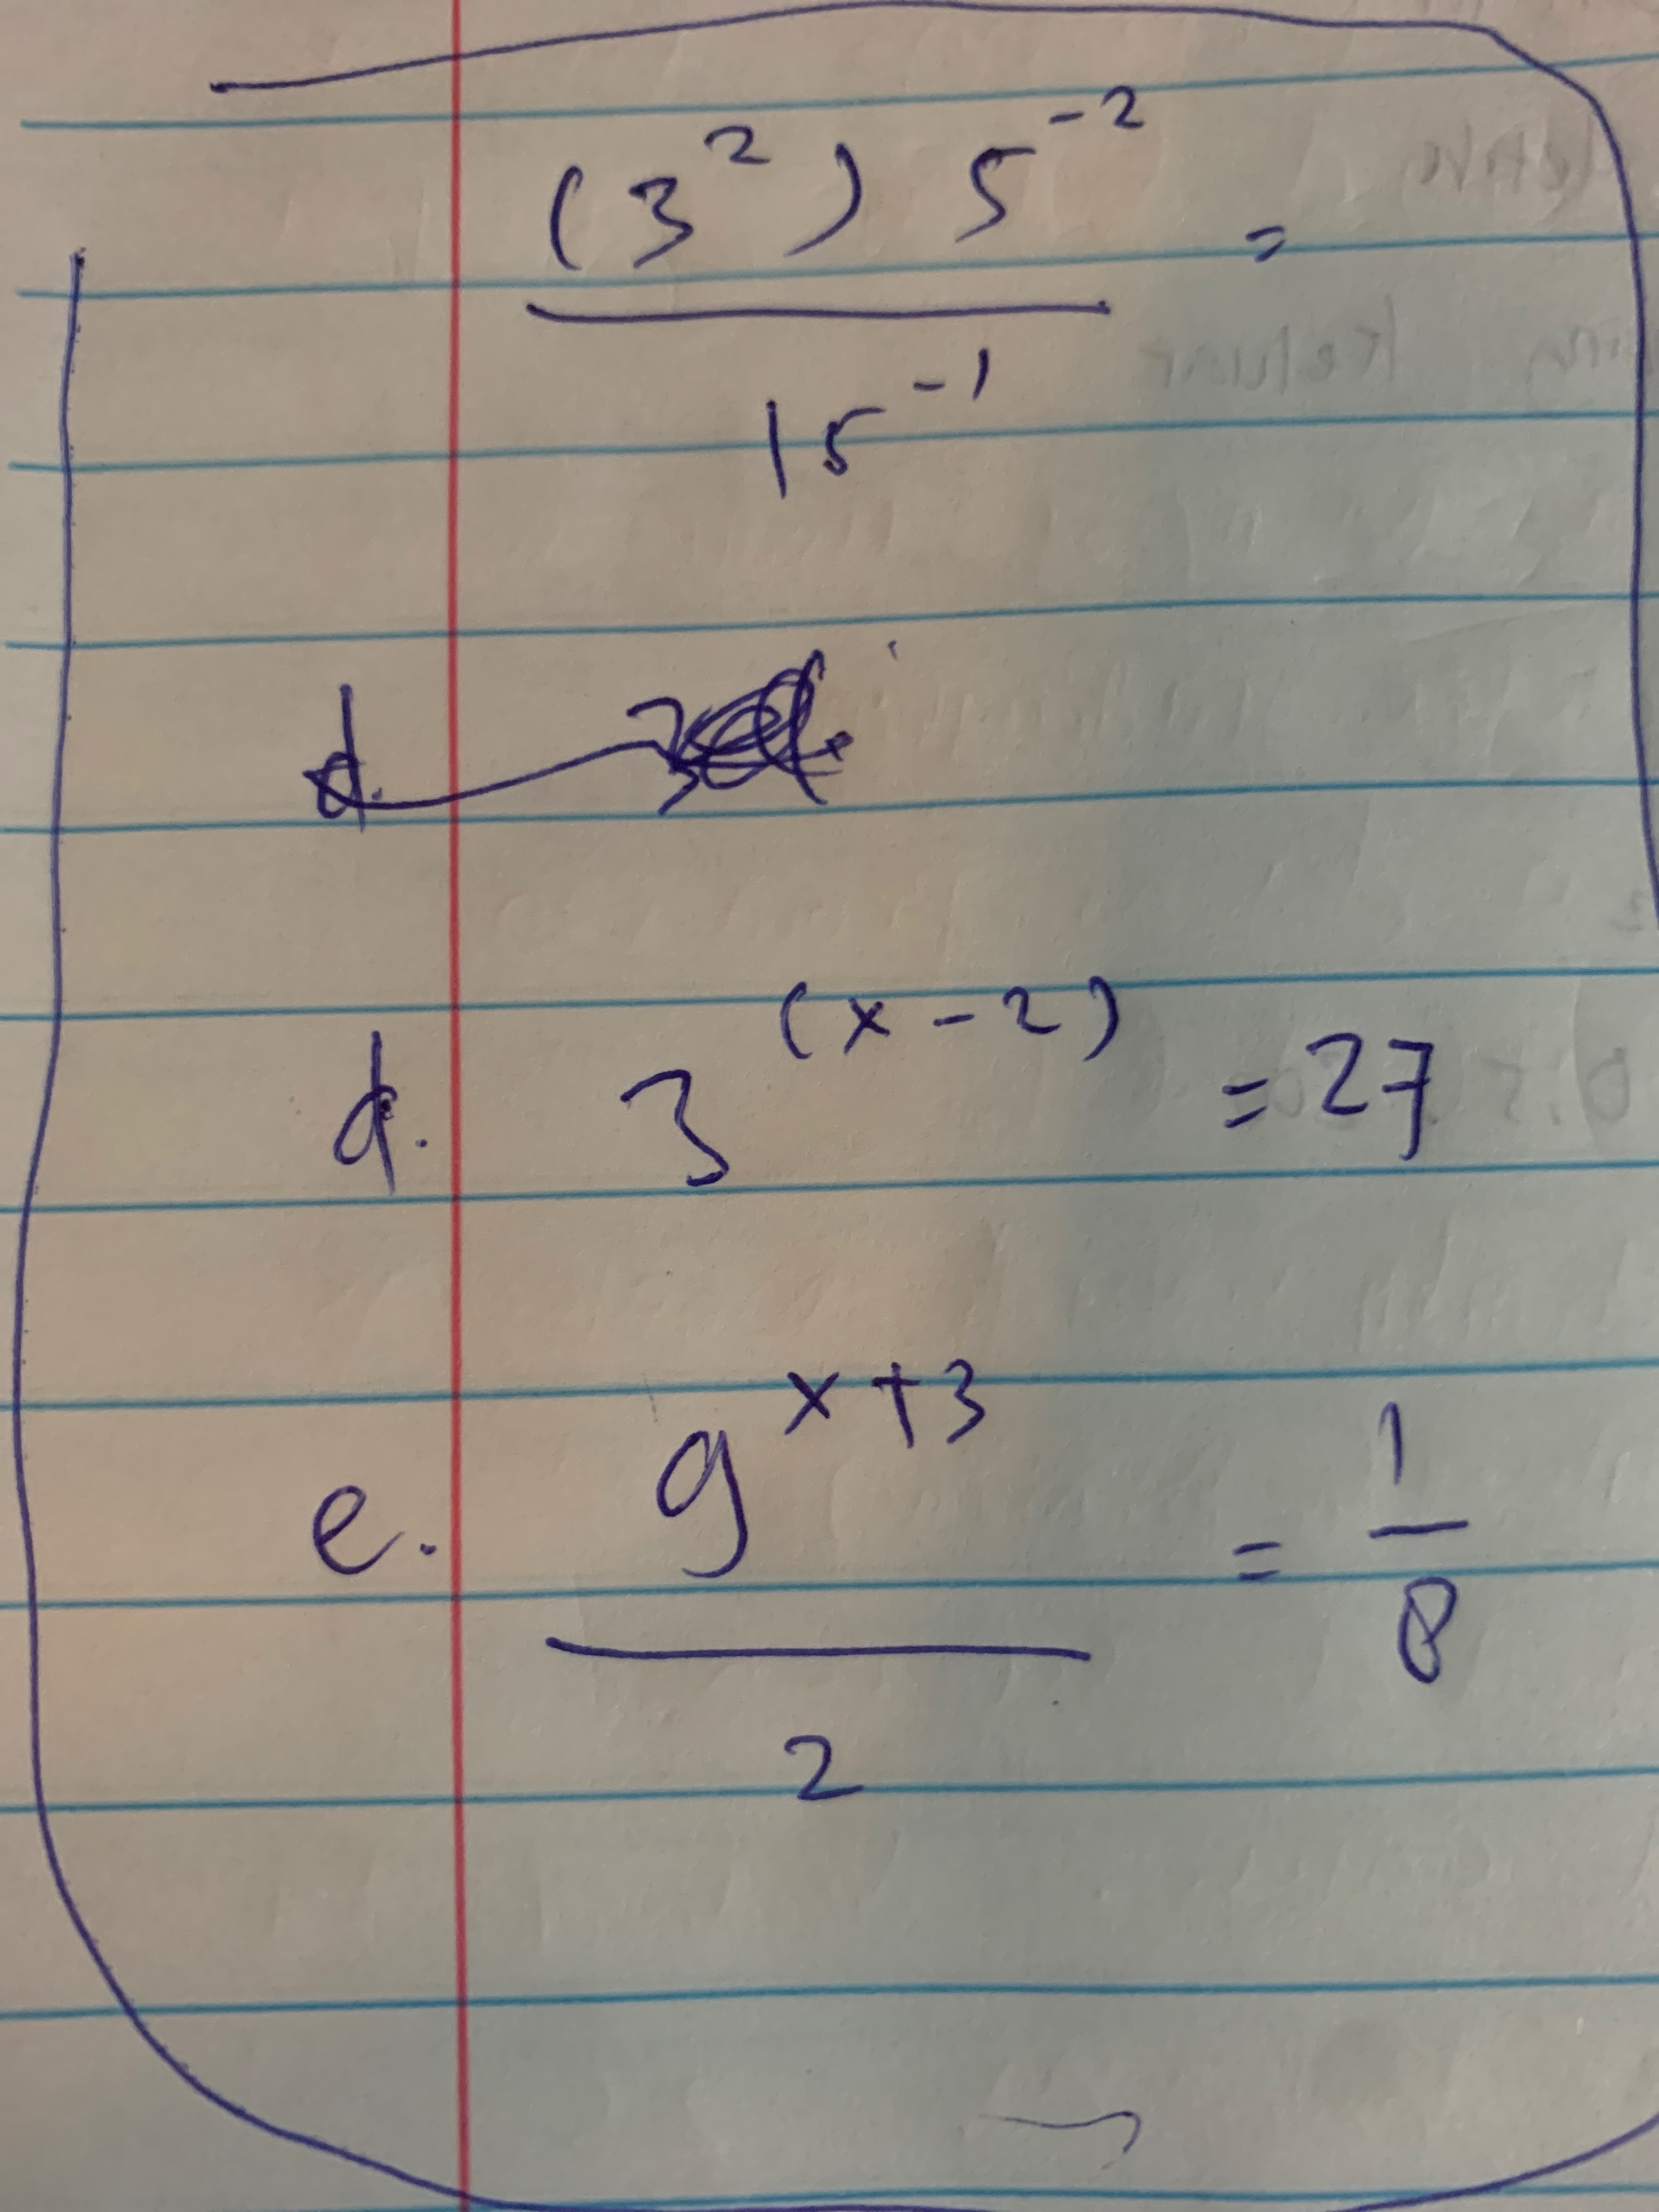 (3²) 5⁻² =
15⁻¹
d.
d. 3⁽ˣ⁻²⁾ = 27
e. 9ˣ⁺³ = 1
2 8